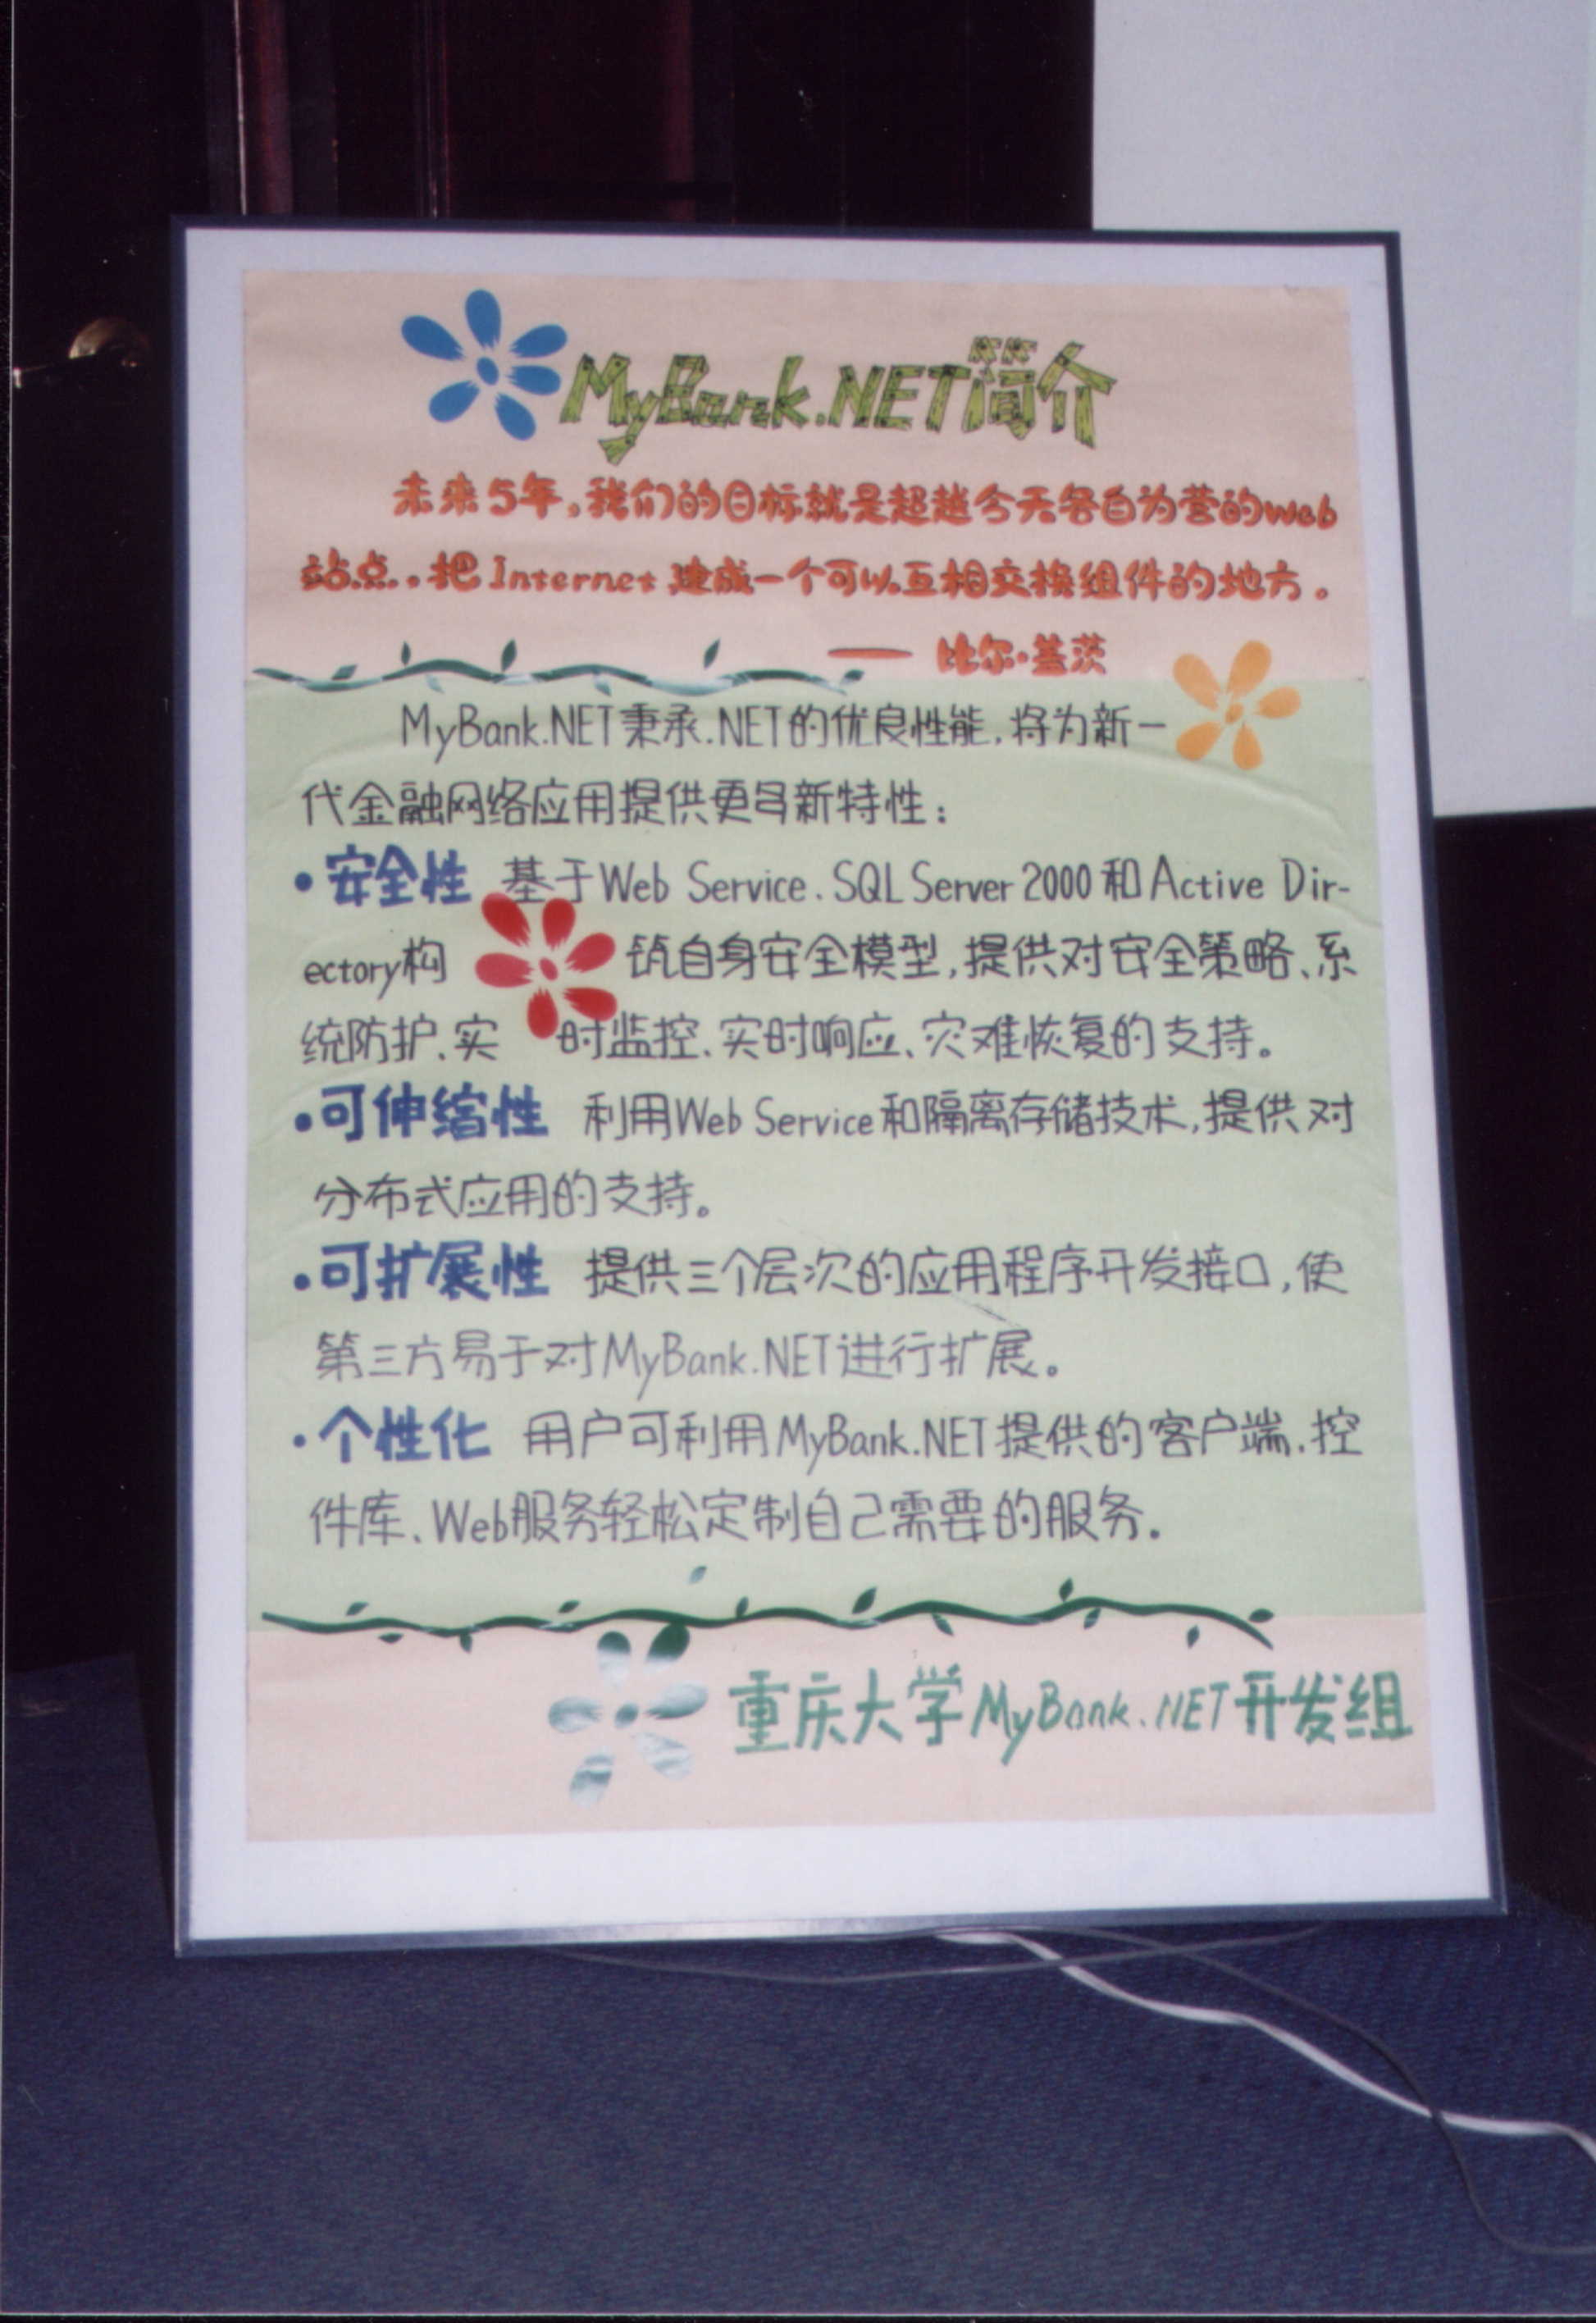 MyBank.NET简介
未来5年,我们的目标就是超越今天各自为营的Web
站点.,把Internet建成一个可以互相交换组件的地方。
—— 比尔·盖茨
MyBank.NET秉承.NET的优良性能,将为新一
代金融网络应用提供更多新特性:
·安全性 基于Web Service、SQL Server 2000和Active Dir-
ectory构筑自身安全模型,提供对安全策略、系
统防护、实时监控、实时响应、灾难恢复的支持。
·可伸缩性 利用Web Service和隔离存储技术,提供对
分布式应用的支持。
·可扩展性 提供三个层次的应用程序开发接口,使
第三方易于对MyBank.NET进行扩展。
·个性化 用户可利用MyBank.NET提供的客户端、控
件库、Web服务轻松定制自己需要的服务。
重庆大学MyBank.NET开发组